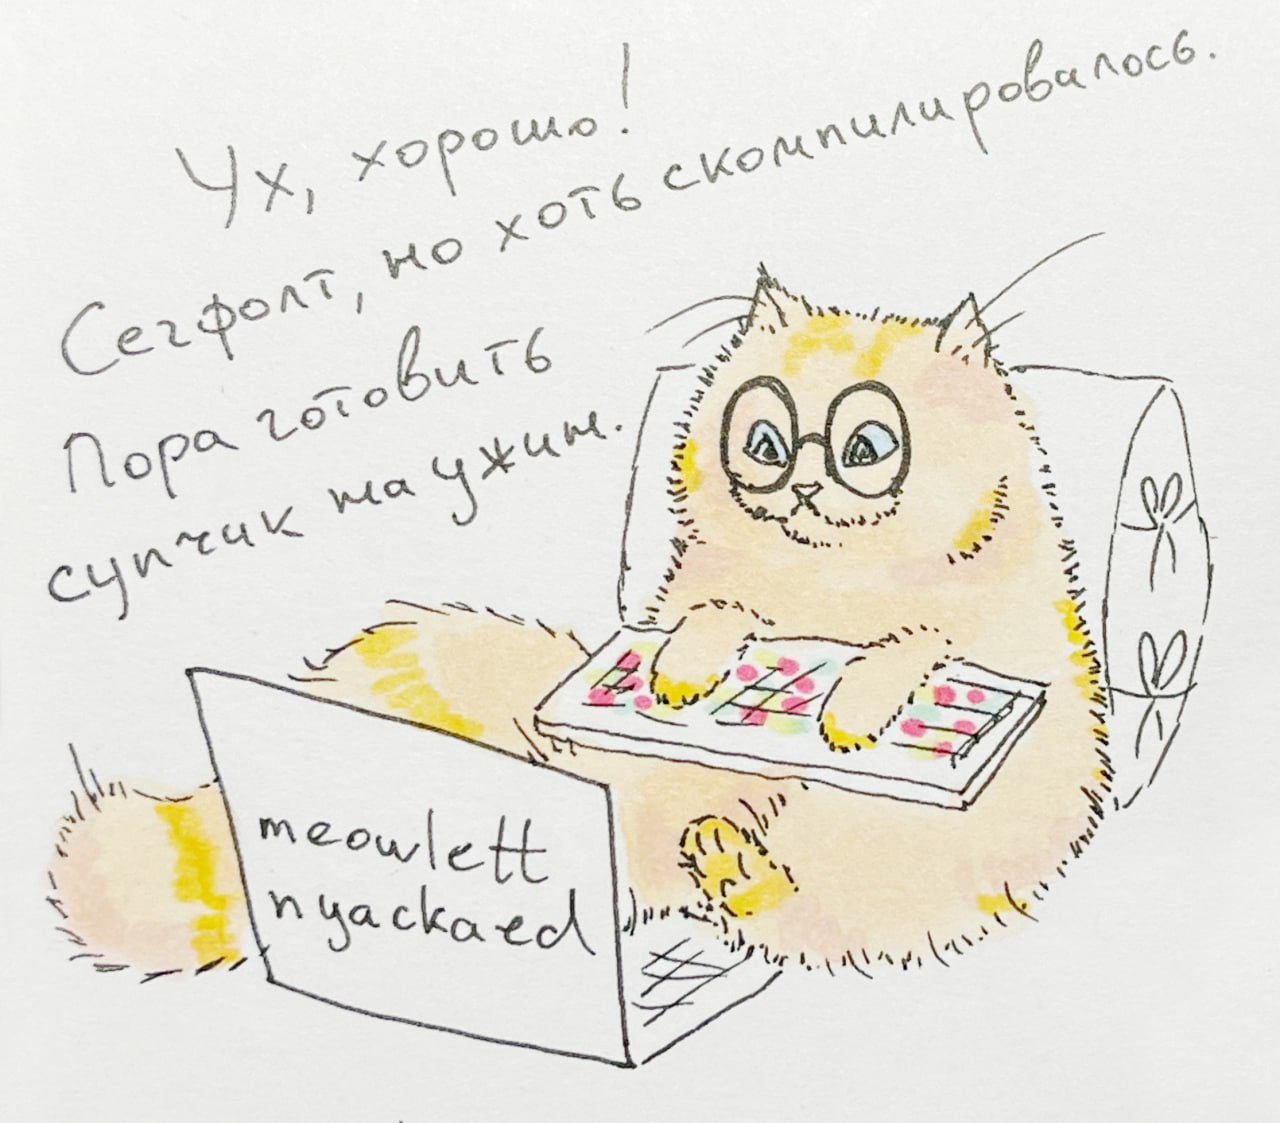 Ух, хорошо!
Сегфолт, но хоть скомпилировалось.
Пора готовить
супчик на ужин.
meowlett
nyackaed